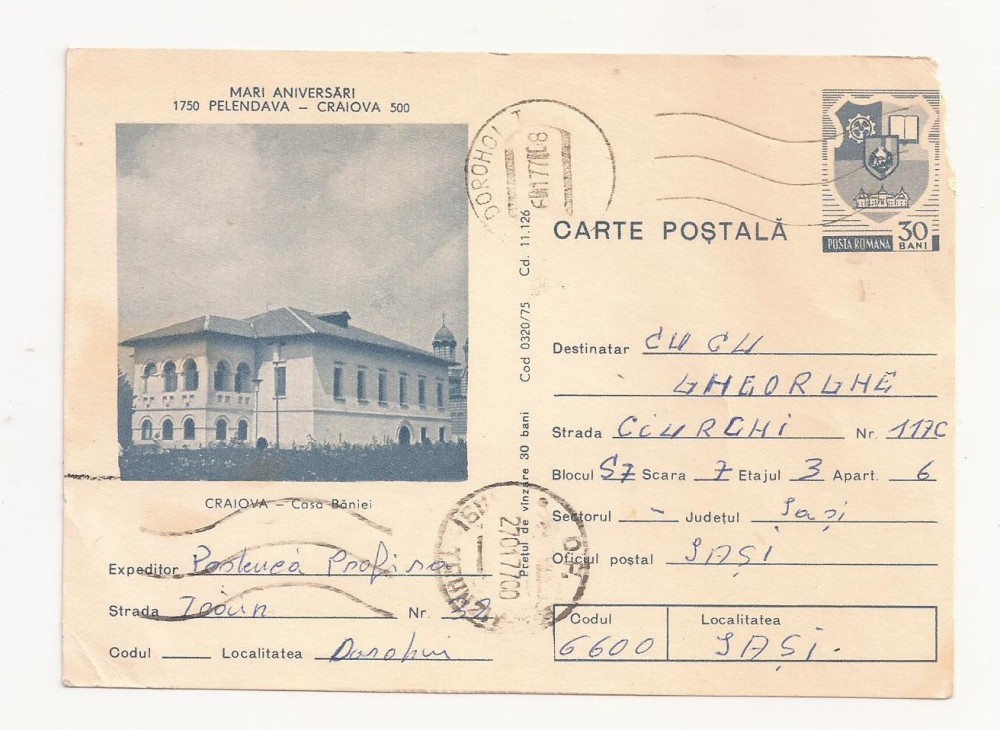 MARI ANIVERSĂRI
1750 PELENDAVA – CRAIOVA 500
CRAIOVA – Casa Băniei
Expeditor
Strada Nr.
Codul Localitatea Dorohoi
Cod 0320/75 Cd. 11.126
Prețul de vînzare 30 bani
DOROHOI
CARTE POȘTALĂ
POȘTA ROMÂNĂ 30 BANI
Destinatar CUCU
GHEORGHE
Strada CIURCHI Nr. 117C
Blocul S7 Scara 7 Etajul 3 Apart. 6
Sectorul – Județul Iași
Oficiul poștal IAȘI
Codul Localitatea
6600 IAȘI.
270177